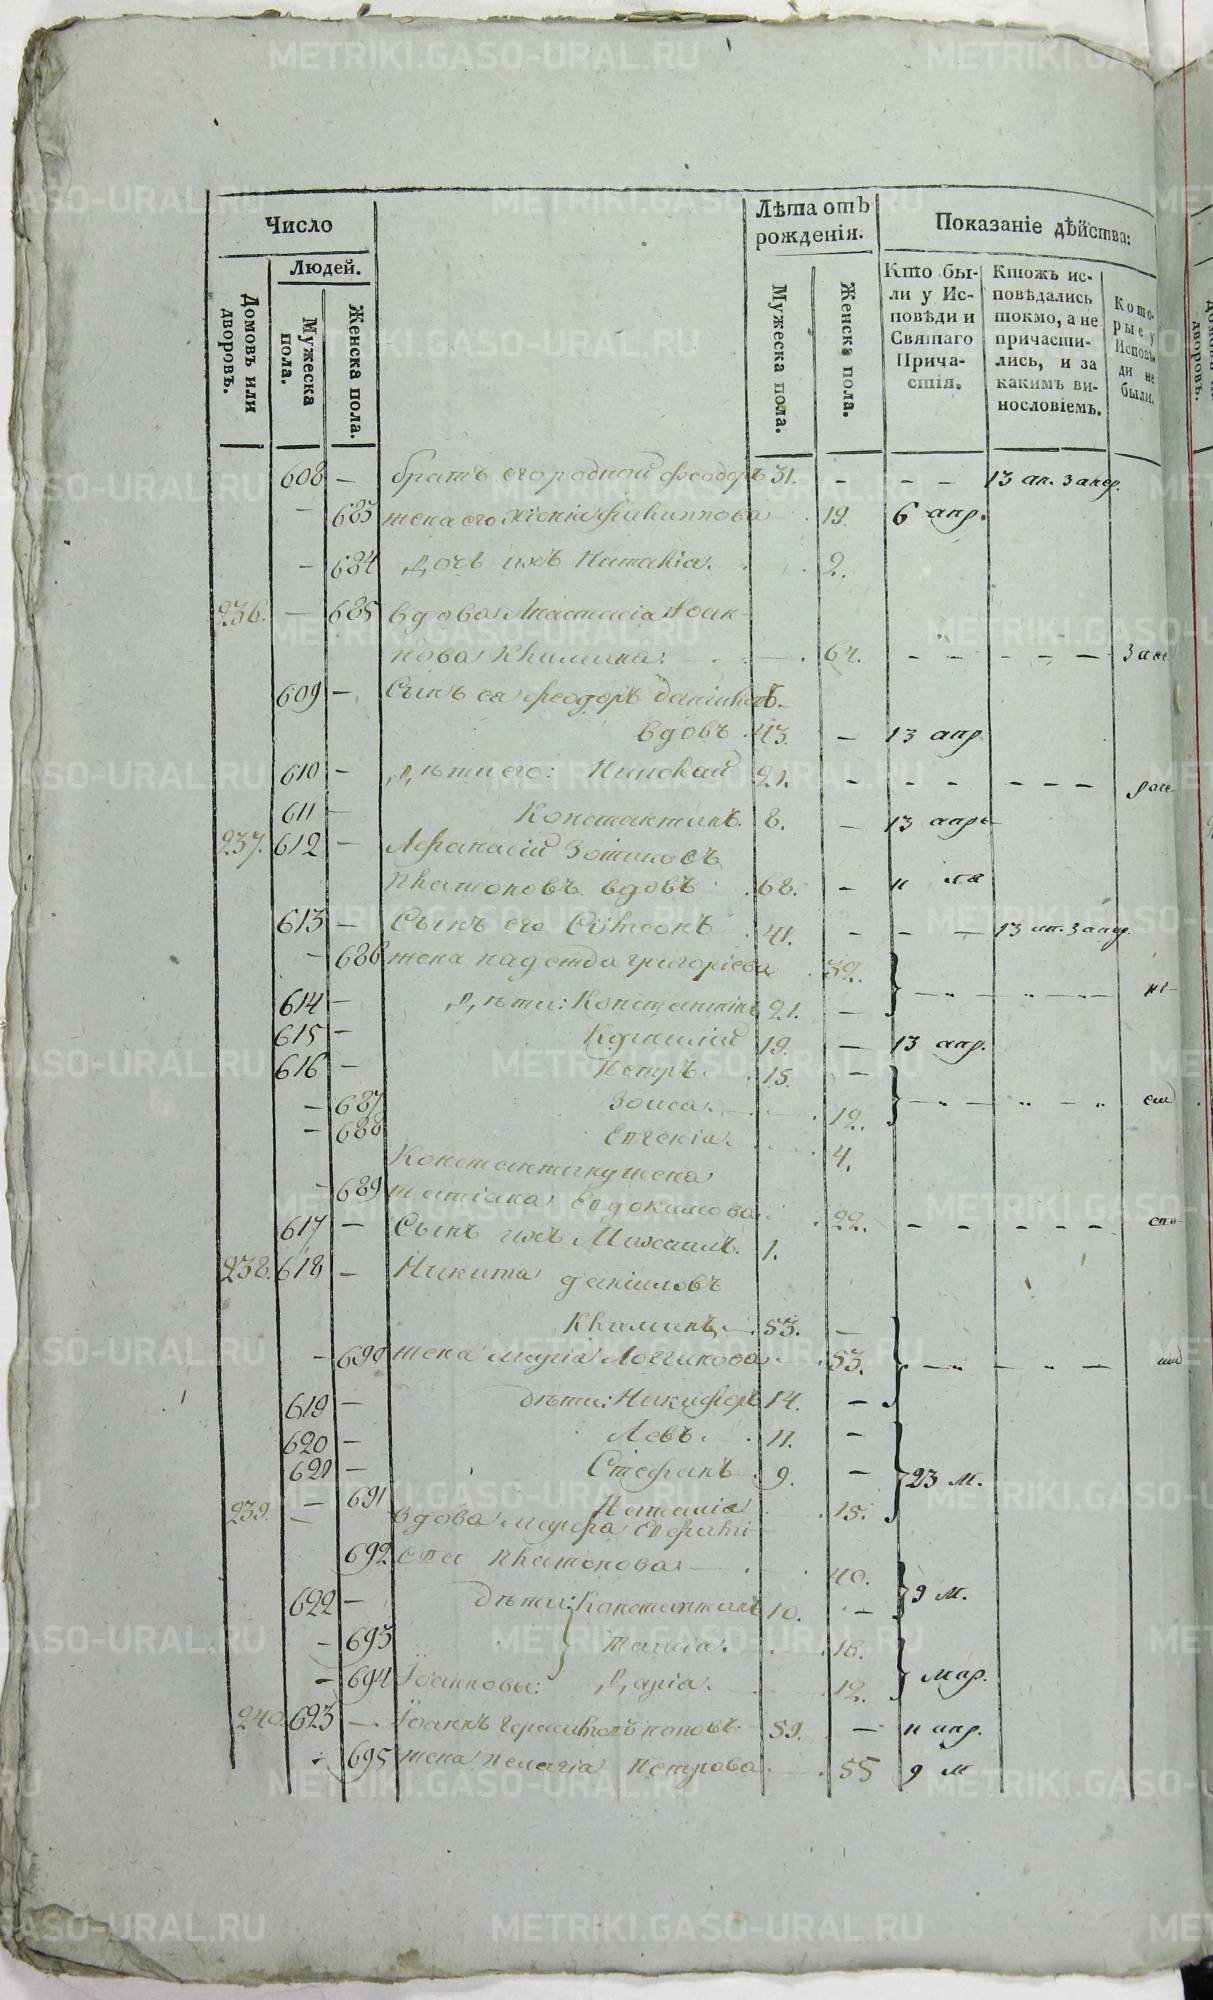 METRIKI.GASO-URAL.RU
Число
Лѣта отъ
рожденія.
Показаніе дѣйства:
Людей.
Домовъ или
дворовъ.
Мужеска
пола.
Женска пола.
Мужеска пола.
Женска пола.
Кто бы-
ли у Ис-
повѣди и
Святаго
Прича-
стія.
Ктожъ ис-
повѣдались
токмо, а не
причасти-
лись, и за
какимъ ви-
нословіемъ.
Кото-
рые у
Исповѣ-
ди не
были.
608 — братъ его родной Феодоръ 31. — — — 13 ап.
— 683 жена его Филиппова 19. 6 апр.
— 684 дочь ихъ Наталія. 2.
236. — 685 вдова Анастасія Іоан-
нова Климина. 64. — — — — —
609 — Сынъ ея Феодоръ Даніиловъ
вдовъ 43. — 13 апр
610 — дѣти его: Николай 21. — — — — — —
611 — Константинъ. 8. — 13 апр
237. 612 — Афанасій Зотиковъ
Платоновъ вдовъ 68. — 11
613 — Сынъ его Симеонъ 41. — — — 13 ап.
— 686 жена Надежда Григоріева 39.
614 — дѣти: Константинъ 21. —
615 — 19. — 13 апр.
616 — Петръ 15. —
— 687 12.
— 688 Евгенія. 4.
Константину жена
— 689 татіана Евдокимова 22. — — — — —
617 — Сынъ ихъ Михаилъ. 1.
238. 618 — Никита Даніиловъ
Климинъ 53. —
— 690 жена Марія Логгинова 53.
619 — дѣти: Никифоръ 14. —
620 — Левъ 11. —
621 — Стефанъ 9. — 23 м.
— 691 Наталія 15.
239. — вдова Марфа
692 Платонова 40.
622 — дѣти: Константинъ 10. — 9 м.
— 693 Таисіа 16.
— 694 Іоанновы: Дарія 12. мар.
240. 623 — Іоаннъ Поповъ 59. — 11 апр.
695 жена Пелагія Петрова 55 9 м